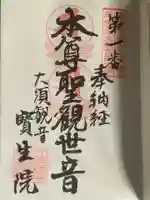 第一番
奉納経
本尊聖観世音
大須観音
寶生院